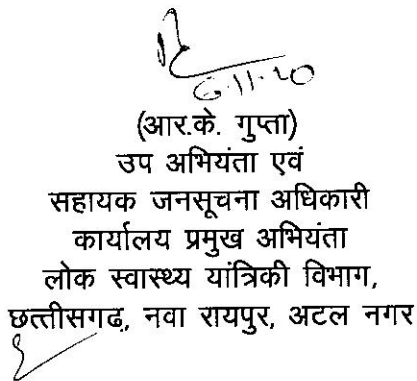 6.11.20
(आर.के. गुप्ता)
उप अभियंता एवं
सहायक जनसूचना अधिकारी
कार्यालय प्रमुख अभियंता
लोक स्वास्थ्य यांत्रिकी विभाग,
छत्तीसगढ, नवा रायपुर, अटल नगर